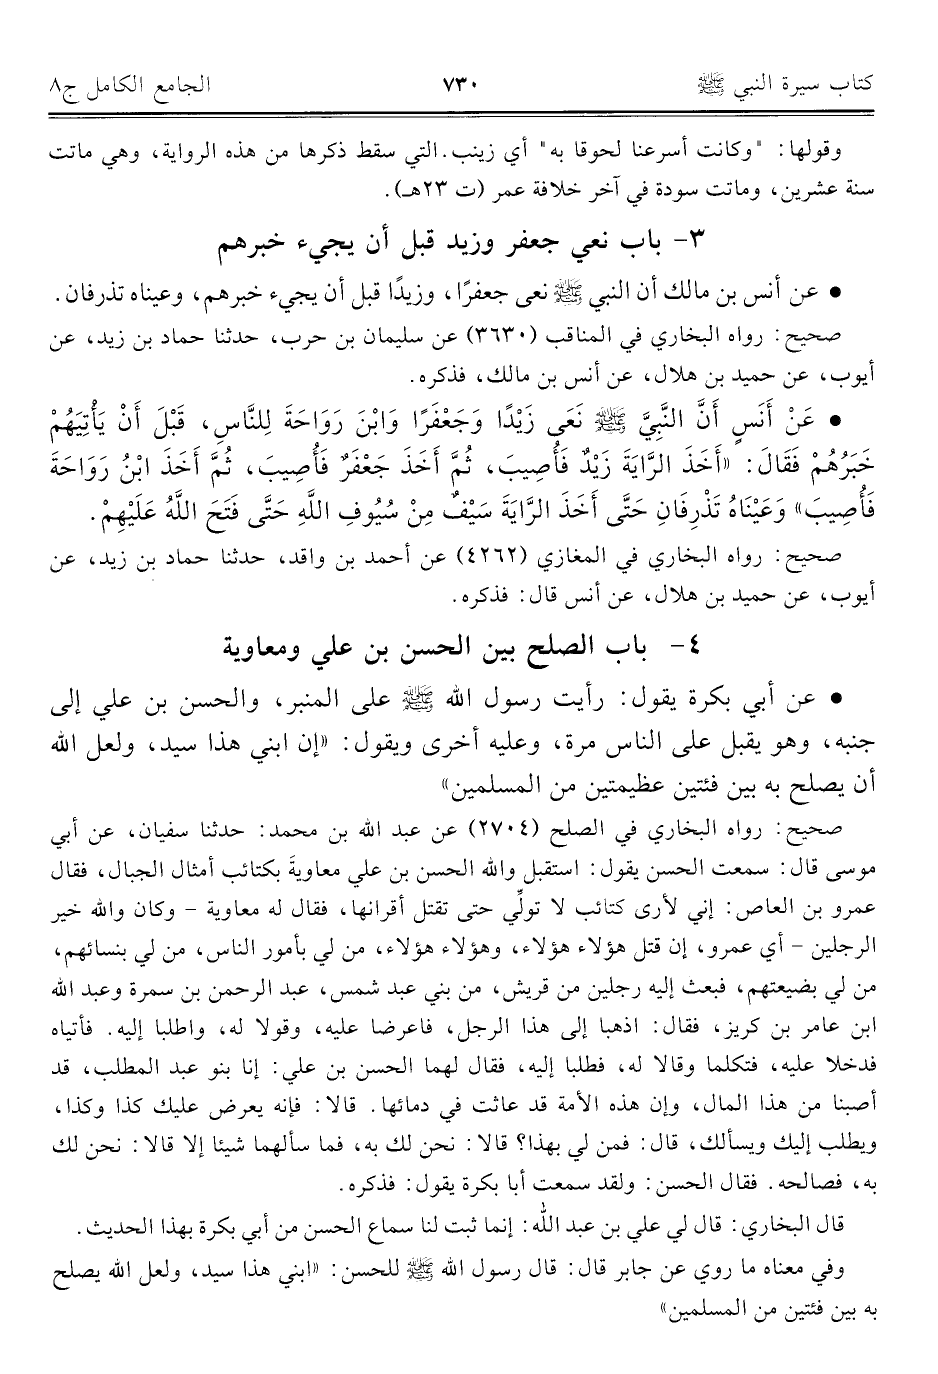 كتاب سيرة النبي ﷺ ٧٣٠ الجامع الكامل ج٨
وقولها: "وكانت أسرعنا لحوقا به" أي زينب. التي سقط ذكرها من هذه الرواية، وهي ماتت
سنة عشرين، وماتت سودة في آخر خلافة عمر (ت ٢٣هـ).
٣- باب نعي جعفر وزيد قبل أن يجيء خبرهم
• عن أنس بن مالك أن النبي ﷺ نعى جعفرًا، وزيدًا قبل أن يجيء خبرهم، وعيناه تذرفان.
صحيح: رواه البخاري في المناقب (٣٦٣٠) عن سليمان بن حرب، حدثنا حماد بن زيد، عن
أيوب، عن حميد بن هلال، عن أنس بن مالك، فذكره.
• عَنْ أَنَسٍ أَنَّ النَّبِيَّ ﷺ نَعَى زَيْدًا وَجَعْفَرًا وَابْنَ رَوَاحَةَ لِلنَّاسِ، قَبْلَ أَنْ يَأْتِيَهُمْ
خَبَرُهُمْ فَقَالَ: «أَخَذَ الرَّايَةَ زَيْدٌ فَأُصِيبَ، ثُمَّ أَخَذَ جَعْفَرٌ فَأُصِيبَ، ثُمَّ أَخَذَ ابْنُ رَوَاحَةَ
فَأُصِيبَ» وَعَيْنَاهُ تَذْرِفَانِ حَتَّى أَخَذَ الرَّايَةَ سَيْفٌ مِنْ سُيُوفِ اللَّهِ حَتَّى فَتَحَ اللَّهُ عَلَيْهِمْ.
صحيح: رواه البخاري في المغازي (٤٢٦٢) عن أحمد بن واقد، حدثنا حماد بن زيد، عن
أيوب، عن حميد بن هلال، عن أنس قال: فذكره.
٤- باب الصلح بين الحسن بن علي ومعاوية
• عن أبي بكرة يقول: رأيت رسول الله ﷺ على المنبر، والحسن بن علي إلى
جنبه، وهو يقبل على الناس مرة، وعليه أخرى ويقول: «إن ابني هذا سيد، ولعل الله
أن يصلح به بين فئتين عظيمتين من المسلمين»
صحيح: رواه البخاري في الصلح (٢٧٠٤) عن عبد الله بن محمد: حدثنا سفيان، عن أبي
موسى قال: سمعت الحسن يقول: استقبل والله الحسن بن علي معاويةَ بكتائب أمثال الجبال، فقال
عمرو بن العاص: إني لأرى كتائب لا تولِّي حتى تقتل أقرانها، فقال له معاوية - وكان والله خير
الرجلين - أي عمرو، إن قتل هؤلاء هؤلاء، وهؤلاء هؤلاء، من لي بأمور الناس، من لي بنسائهم،
من لي بضيعتهم، فبعث إليه رجلين من قريش، من بني عبد شمس، عبد الرحمن بن سمرة وعبد الله
ابن عامر بن كريز، فقال: اذهبا إلى هذا الرجل، فاعرضا عليه، وقولا له، واطلبا إليه. فأتياه
فدخلا عليه، فتكلما وقالا له، فطلبا إليه، فقال لهما الحسن بن علي: إنا بنو عبد المطلب، قد
أصبنا من هذا المال، وإن هذه الأمة قد عاثت في دمائها. قالا: فإنه يعرض عليك كذا وكذا،
ويطلب إليك ويسألك، قال: فمن لي بهذا؟ قالا: نحن لك به، فما سألهما شيئا إلا قالا: نحن لك
به، فصالحه. فقال الحسن: ولقد سمعت أبا بكرة يقول: فذكره.
قال البخاري: قال لي علي بن عبد الله: إنما ثبت لنا سماع الحسن من أبي بكرة بهذا الحديث.
وفي معناه ما روي عن جابر قال: قال رسول الله ﷺ للحسن: «ابني هذا سيد، ولعل الله يصلح
به بين فئتين من المسلمين»